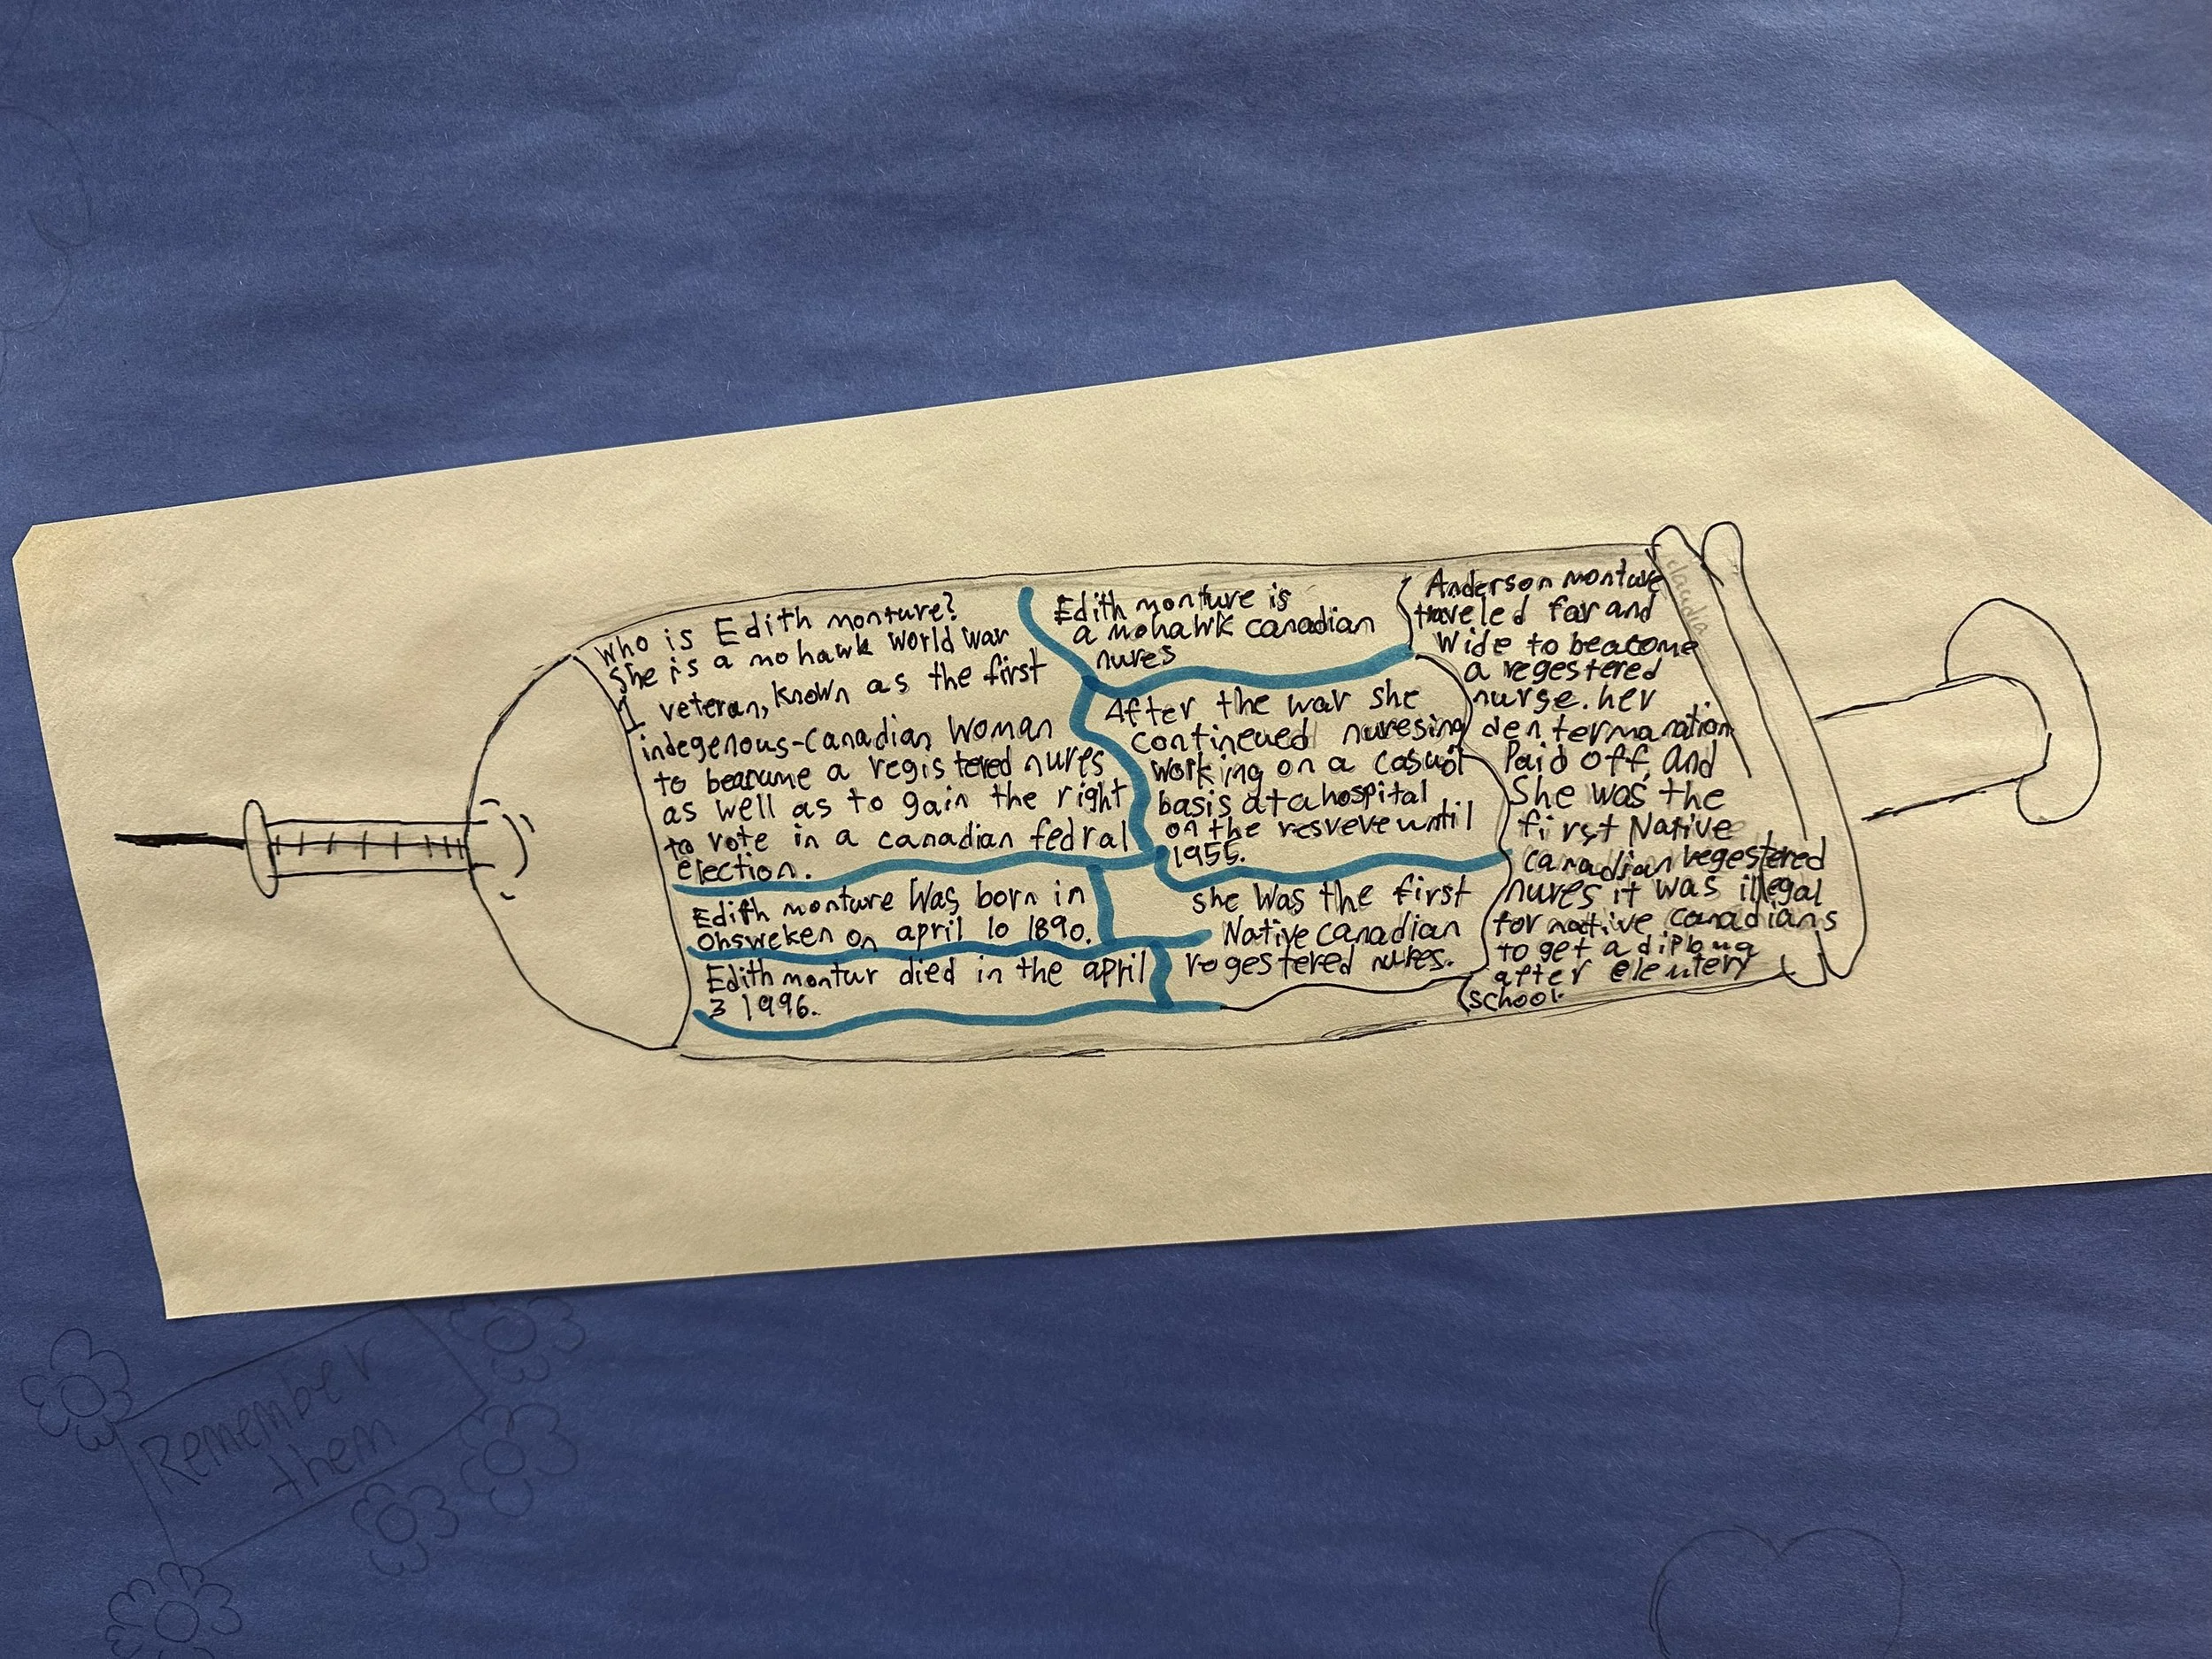 Who is Edith monture?
She is a mohawk World War
1 veteran, known as the first
indegenous-Canadian Woman
to beacume a registered nures
as well as to gain the right
to vote in a canadian fedral
election.
Edith monture Was born in
Ohsweken on april 10 1890.
Edith montur died in the april
3 1996.
Edith monture is
a mohawk canadian
nures
After the war she
contineued nuresing
working on a casual
basis at a hospital
on the resveve until
1955.
she Was the first
Native Canadian
rogestered nures.
Anderson monture
traveled far and
Wide to beacome
a regestered
nurse. her
dentermanation
Paid off, and
She was the
first Native
canadian regestered
nures it was illegal
for native canadians
to get a
after
school.
claudia
Remember
them